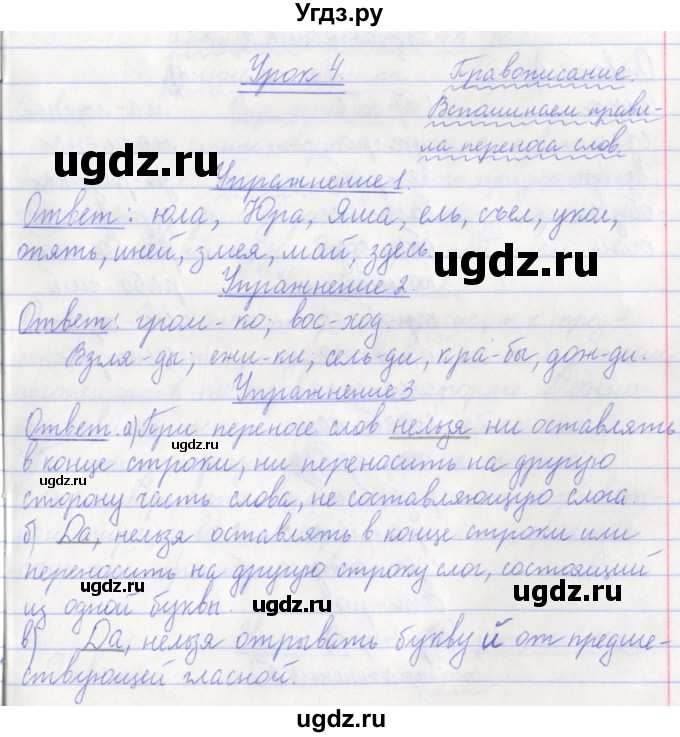 Угдз.ру
Урок 4. Правописание.
Вспоминаем прави-
ла переноса слов.
ugdz.ru
Упражнение 1.
Ответ: юла, Юра, Яша, ель, съел, укол,
опять, иней, змея, май, здесь.
ugdz.ru
Упражнение 2
Ответ: гром-ко; вос-ход.
Взгля-ды; ежи-ки, сель-ди, кра-бы, дож-ди.
Упражнение 3
Ответ. а) При переносе слов нельзя ни оставлять
ugdz.ru
ugdz.ru
в конце строки, ни переносить на другую
сторону часть слова, не составляющую слога.
б) Да, нельзя оставлять в конце строки или
переносить на другую строку слог, состоящий
из одной буквы.
ugdz.ru
ugdz.ru
в) Да, нельзя отрывать букву й от предше-
ствующей гласной.
ugdz.ru
ugdz.ru